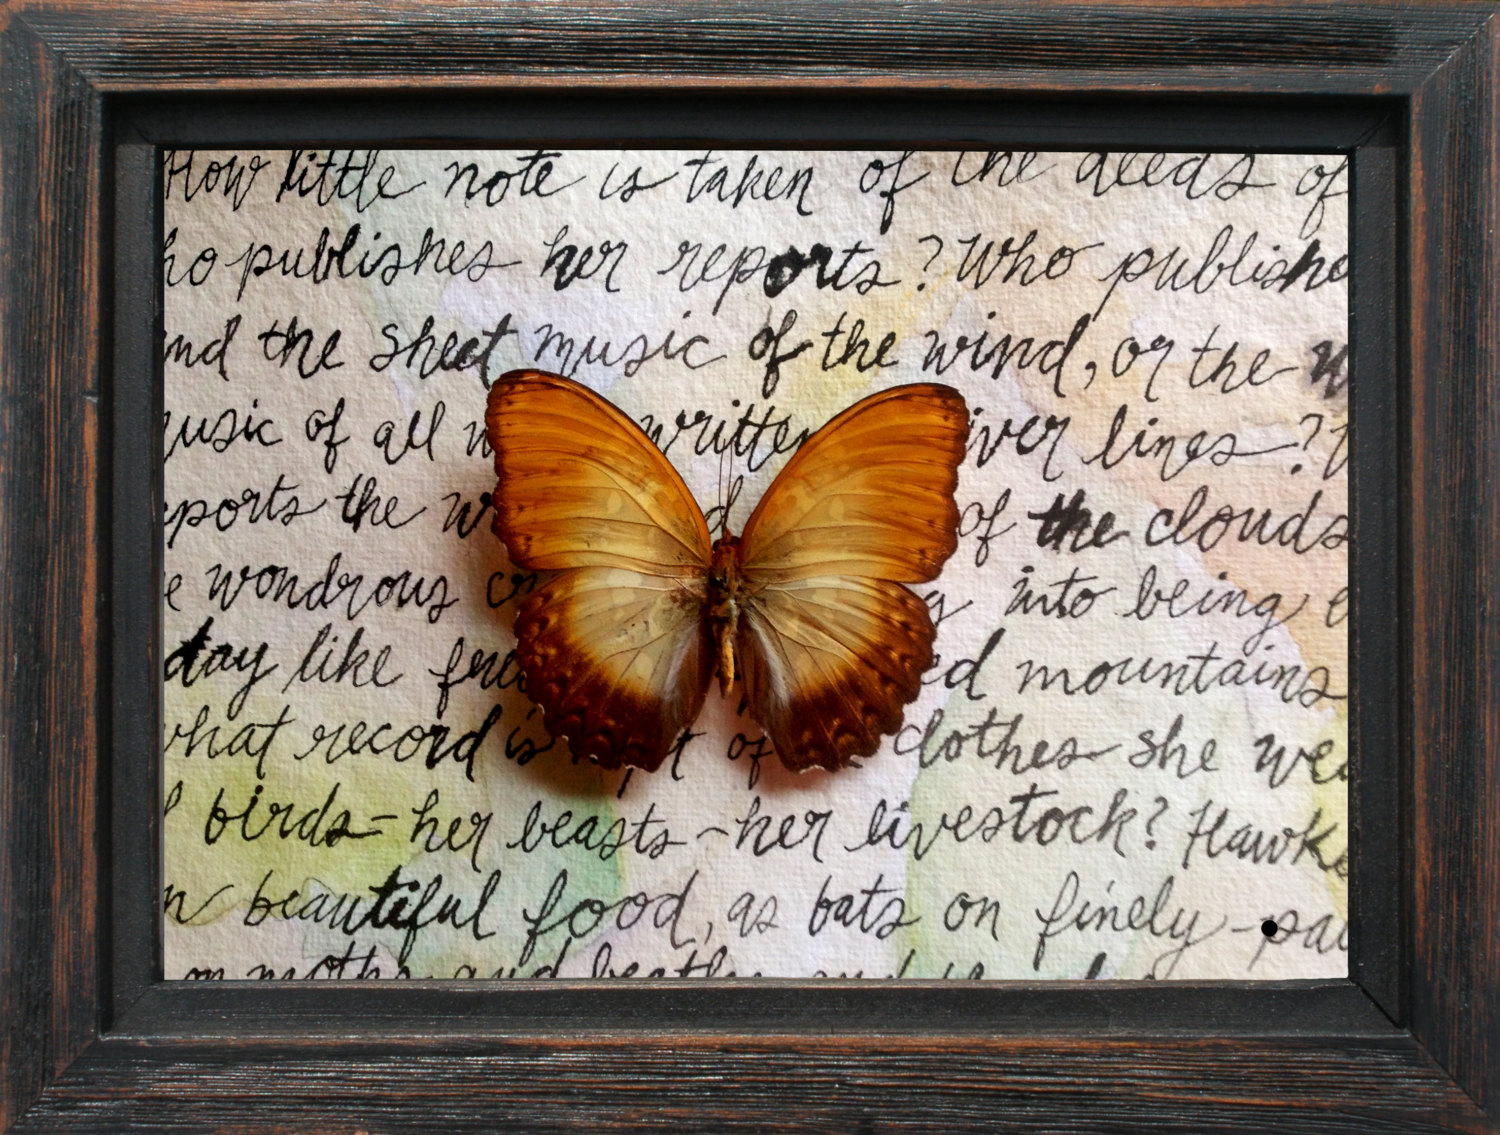 How little note is taken of the deeds of
ho publishes her reports? Who publishe
nd the sheet music of the wind, or the
usic of all written iver lines?
ports the of the clouds
e wondrous g into being
day like ed mountains
what record is kept of clothes she we
birds-her beasts-her livestock? Hawks
n beautiful food, as bats on finely-pa
on moths and beetles and